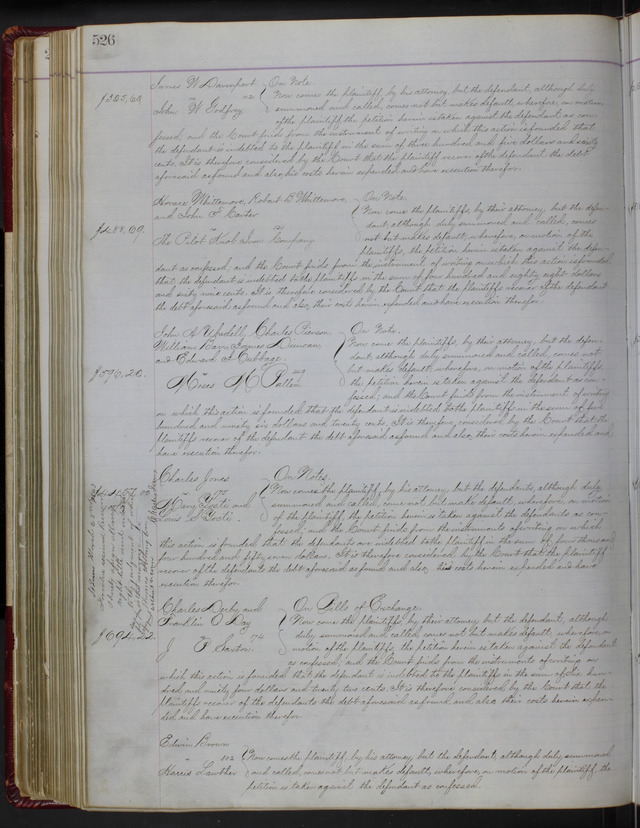 526
James W Davenport } On Note.
vs
$305,60 John W Godfrey
Now comes the plaintiff, by his attorney, but the defendant, although duly
summoned and called, comes not but makes default, wherefore, on motion
of the plaintiff, the petition herein is taken against the defendant as con-
fessed, and the Court finds from the instrument of writing on which this action is founded that
the defendant is indebted to the plaintiff in the sum of three hundred and five dollars and sixty
cents. It is therefore considered by the Court that the plaintiff recover of the defendant the debt
aforesaid as found and also his costs herein expended and have execution therefor.
Horace Whittemore, Robert B Whittemore } On Note
and John F Carter
$488,69. vs
The Pilot Knob Iron Company
Now come the plaintiffs, by their attorney, but the defen-
dant although duly summoned and called, comes
not but makes default, wherefore, on motion of the
plaintiffs, the petition herein is taken against the defen-
dant as confessed, and the Court finds from the instrument of writing on which this action is founded
that the defendant is indebted to the plaintiffs in the sum of four hundred and eighty eight dollars
and sixty nine cents. It is therefore considered by the Court that the plaintiffs recover of the defendant
the debt aforesaid as found and also their costs herein expended and have execution therefor.
John A Ubsdell, Charles Pierson } On Note.
William Barr James Duncan
and Edward J Cubbage.
$596,20. vs
Moses M Pallen
Now come the plaintiffs, by their attorney, but the defen-
dant although duly summoned and called, comes not
but makes default, wherefore, on motion of the plaintiffs,
the petition herein is taken against the defendant as con-
fessed, and the Court finds from the instrument of writing
on which this action is founded that the defendant is indebted to the plaintiffs in the sum of five
hundred and ninety six dollars and twenty cents. It is therefore considered by the Court that the
plaintiffs recover of the defendant the debt aforesaid as found and also their costs herein expended and
have execution therefor.
Charles Jones } On Notes.
vs
Mary Yosti and
Louis Yosti.
Now comes the plaintiff, by his attorney, but the defendants, although duly
summoned and called, come not but make default, wherefore, on motion
of the plaintiff, the petition herein is taken against the defendants as con-
fessed, and the Court finds from the instruments of writing on which
this action is founded that the defendants are indebted to the plaintiff in the sum of four thousand
four hundred and fifty seven dollars. It is therefore considered by the Court that the plaintiff
recover of the defendants the debt aforesaid as found and also his costs herein expended and have
execution therefor.
Charles Derby and } On Bills of Exchange.
Franklin O Day
$694.22. vs 174
J F Saxton.
Now come the plaintiffs, by their attorney but the defendant, although
duly summoned and called, comes not but makes default, wherefore, on
motion of the plaintiffs, the petition herein is taken against the defendant
as confessed, and the Court finds from the instruments of writing on
which this action is founded that the defendant is indebted to the plaintiffs in the sum of six hun-
dred and ninety four dollars and twenty two cents. It is therefore considered by the Court that the
plaintiffs recover of the defendant the debt aforesaid as found and also their costs herein expen-
ded and have execution therefor.
Edwin Brown
vs 202
Harris Lauther
Now comes the plaintiff, by his attorney, but the defendant, although duly summoned
and called, comes not but makes default, wherefore, on motion of the plaintiff, the
petition is taken against the defendant as confessed.